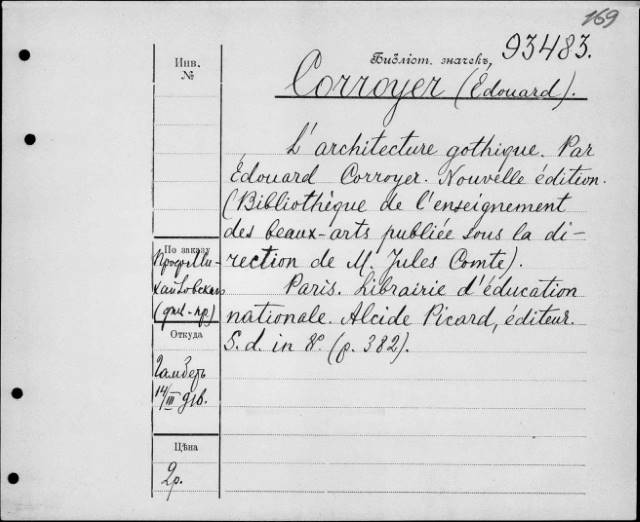 169
Библіот. значекъ, 93483.
Инв.
№
Corroyer (Édouard).
L'architecture gothique. Par
Édouard Corroyer. Nouvelle édition.
(Bibliothèque de l'enseignement
des beaux-arts publiée sous la di-
rection de M. Jules Comte).
Paris. Librairie d'éducation
nationale. Alcide Picard, éditeur.
S. d. in 8º (p. 382).
По заказу
Проф. Ми-
хайловскаго
Откуда
14/III
Цѣна
2р.